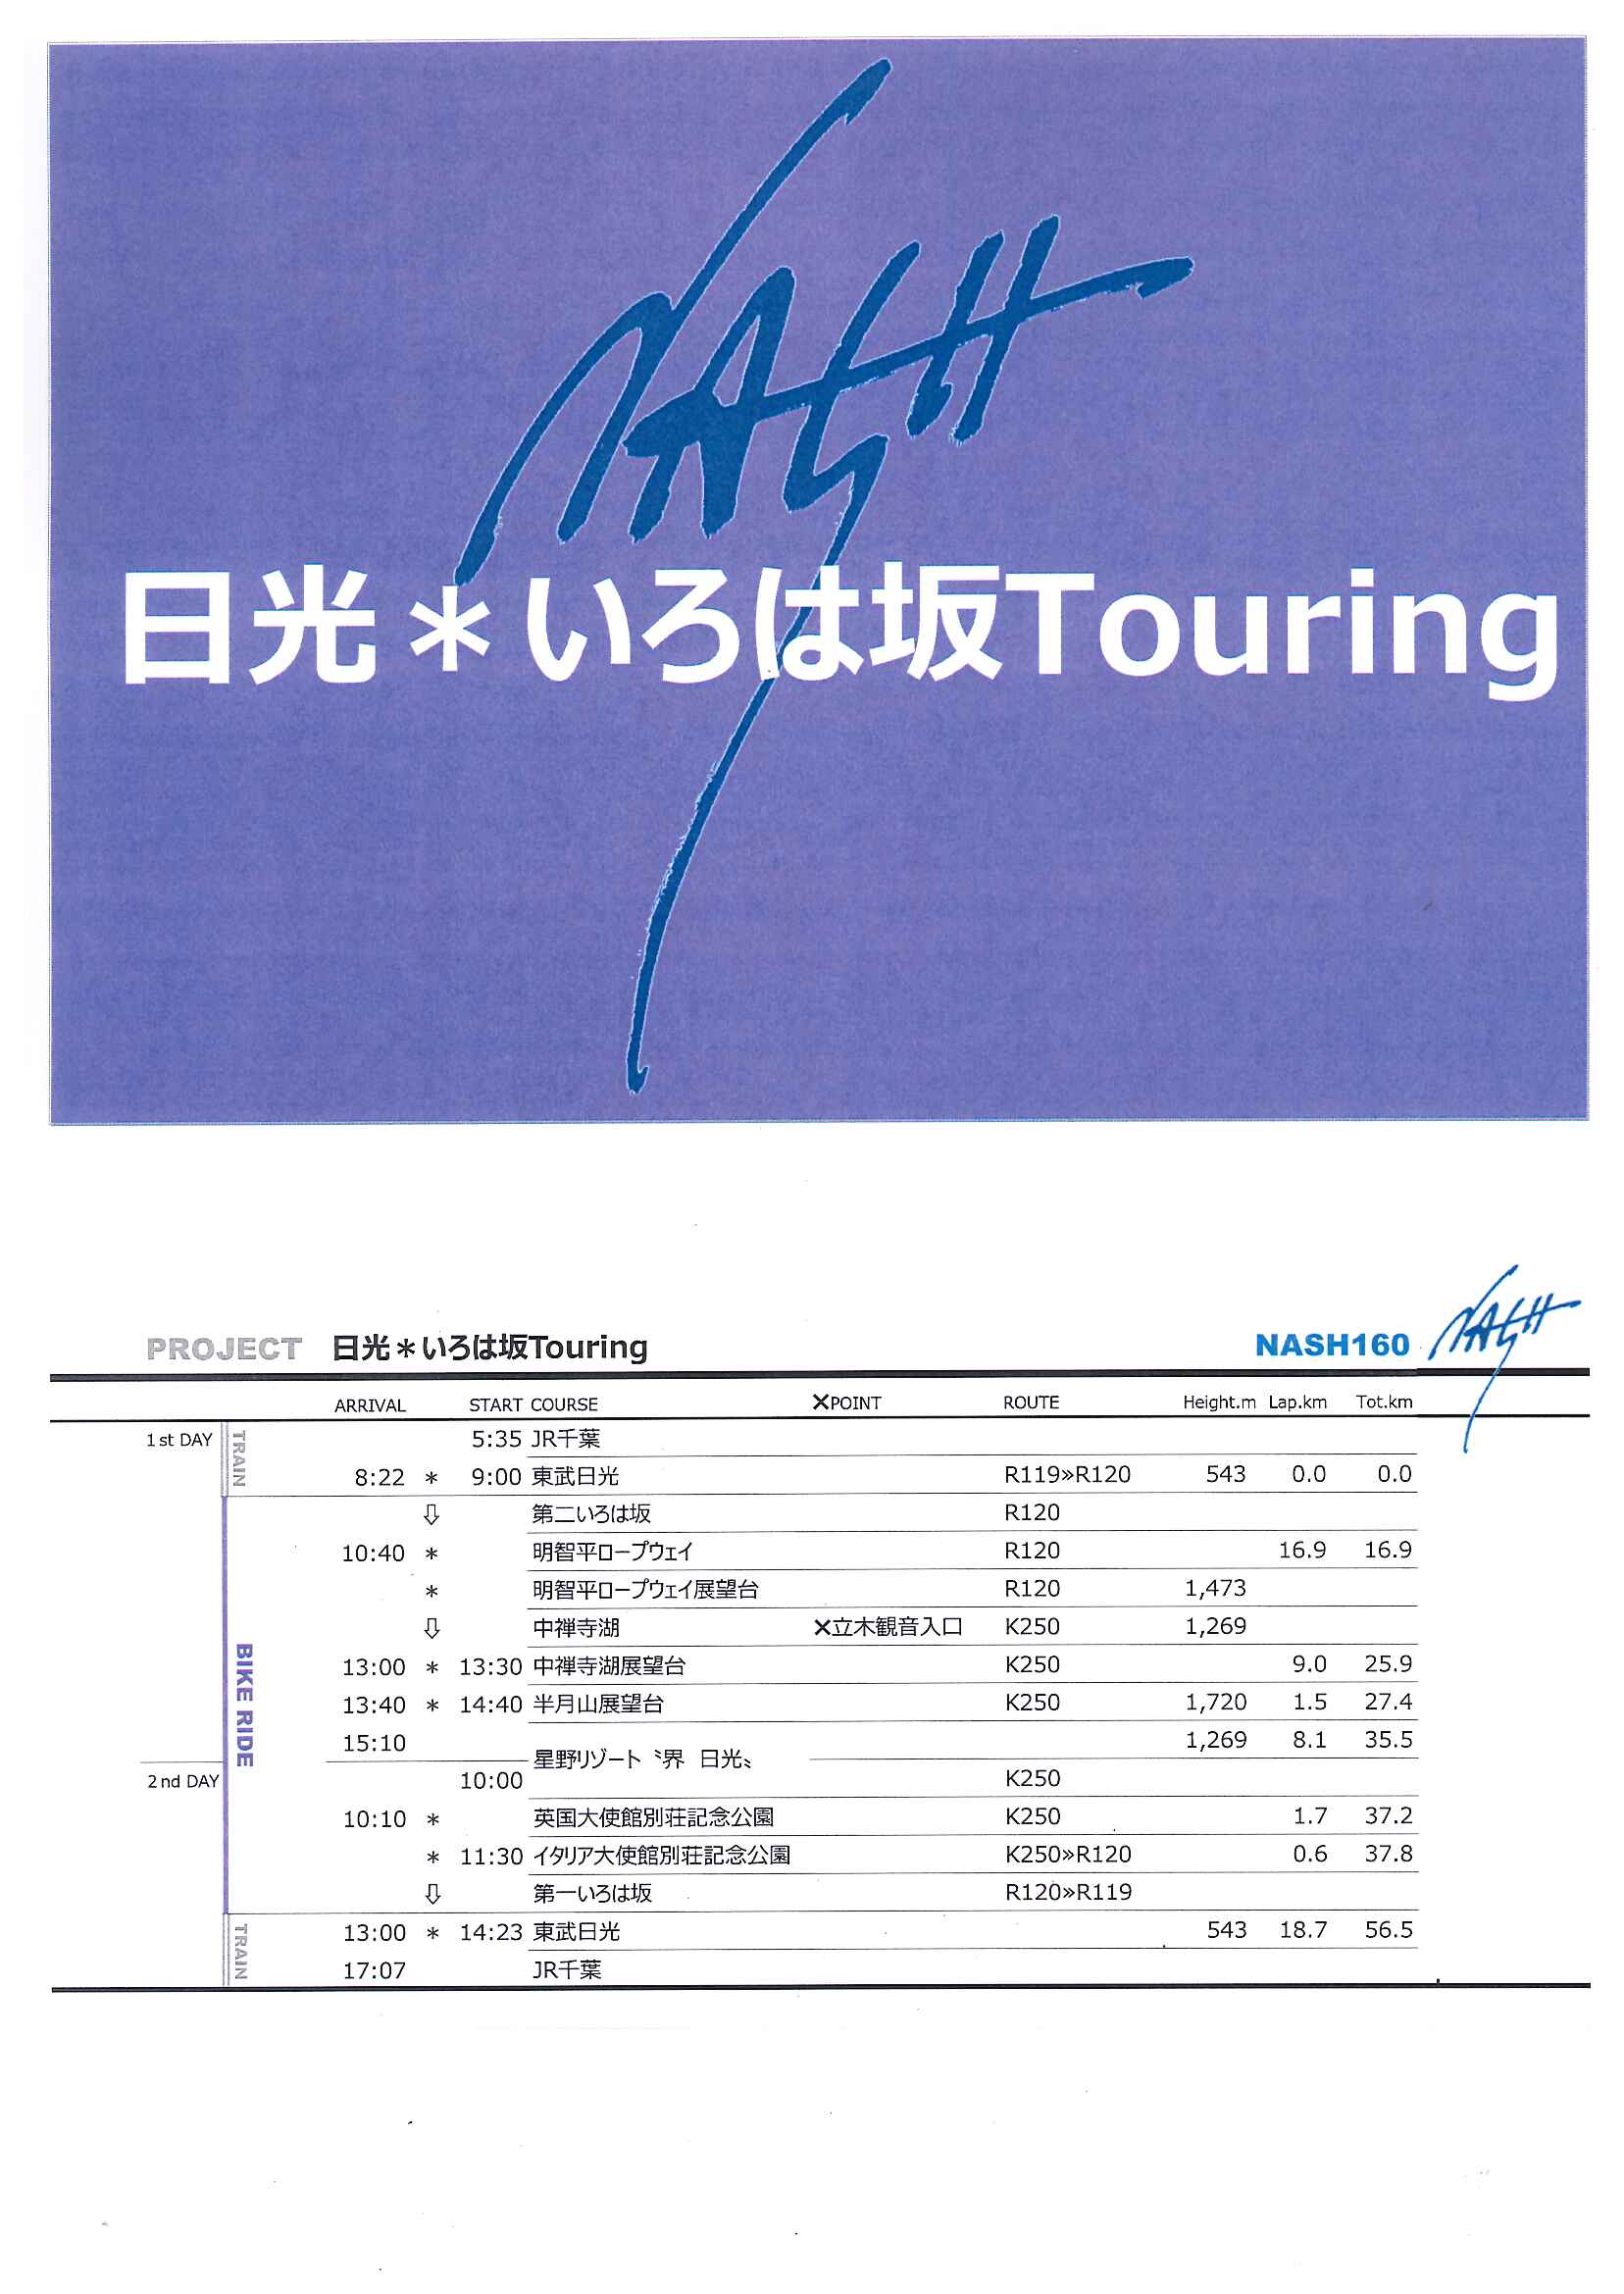 NASH
日光＊いろは坂Touring
PROJECT 日光＊いろは坂Touring NASH160 NASH
ARRIVAL START COURSE ✕POINT ROUTE Height.m Lap.km Tot.km
1st DAY TRAIN 5:35 JR千葉
8:22 * 9:00 東武日光 R119»R120 543 0.0 0.0
BIKE RIDE ⇩ 第二いろは坂 R120
10:40 * 明智平ロープウェイ R120 16.9 16.9
* 明智平ロープウェイ展望台 R120 1,473
⇩ 中禅寺湖 ✕立木観音入口 K250 1,269
13:00 * 13:30 中禅寺湖展望台 K250 9.0 25.9
13:40 * 14:40 半月山展望台 K250 1,720 1.5 27.4
15:10 1,269 8.1 35.5
星野リゾート〝界 日光〟
2nd DAY 10:00 K250
10:10 * 英国大使館別荘記念公園 K250 1.7 37.2
* 11:30 イタリア大使館別荘記念公園 K250»R120 0.6 37.8
⇩ 第一いろは坂 R120»R119
TRAIN 13:00 * 14:23 東武日光 543 18.7 56.5
17:07 JR千葉